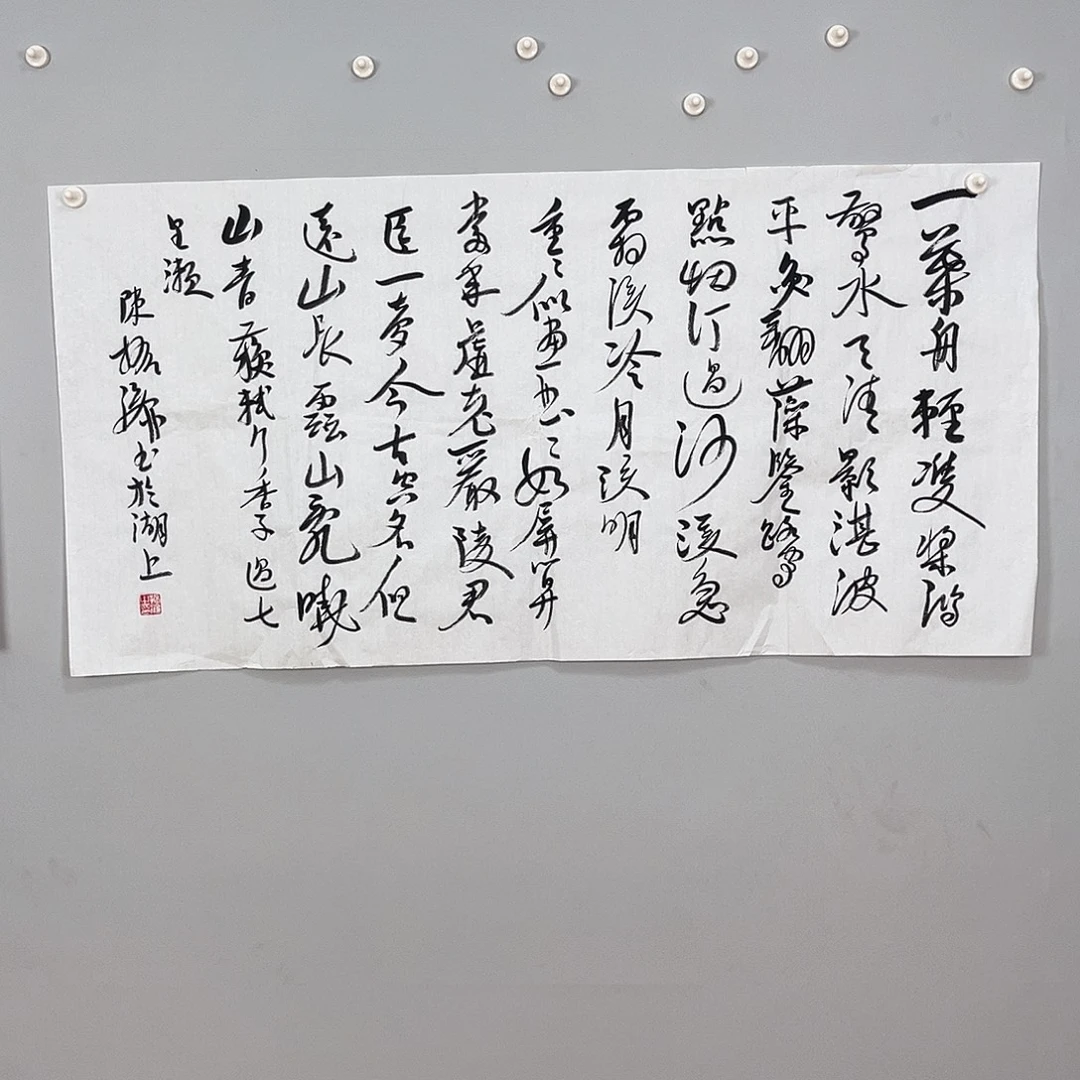 一葉舟輕雙槳鴻
驚水天清影湛波
平魚翻藻鑒鷺
點烟汀過沙溪急
霜溪冷月溪明
重〻似畫曲〻如屏算
當年虛老嚴陵君
臣一夢今古空名但
遠山長雲山亂曉
山青 蘇軾行香子 過七
里瀨
陳书於湖上